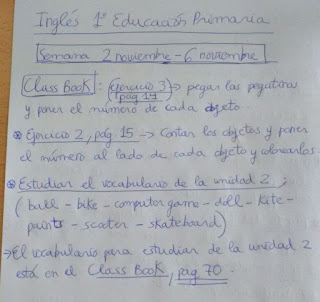 Inglés 1º Educación Primaria
Semana 2 noviembre - 6 noviembre
Class Book : (Ejercicio 3 → pegar las pegatinas
pág 14)
y poner el número de cada objeto.
* Ejercicio 2, pág. 15 → Contar los objetos y poner
el número al lado de cada objeto y colorearlos.
* Estudiar el vocabulario de la unidad 2 :
( ball - bike - computer game - doll - kite -
paints - scooter - skateboard)
→ El vocabulario para estudiar de la unidad 2
está en el Class Book, pág 70.